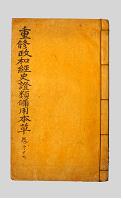 重修政和經史證類備用本草